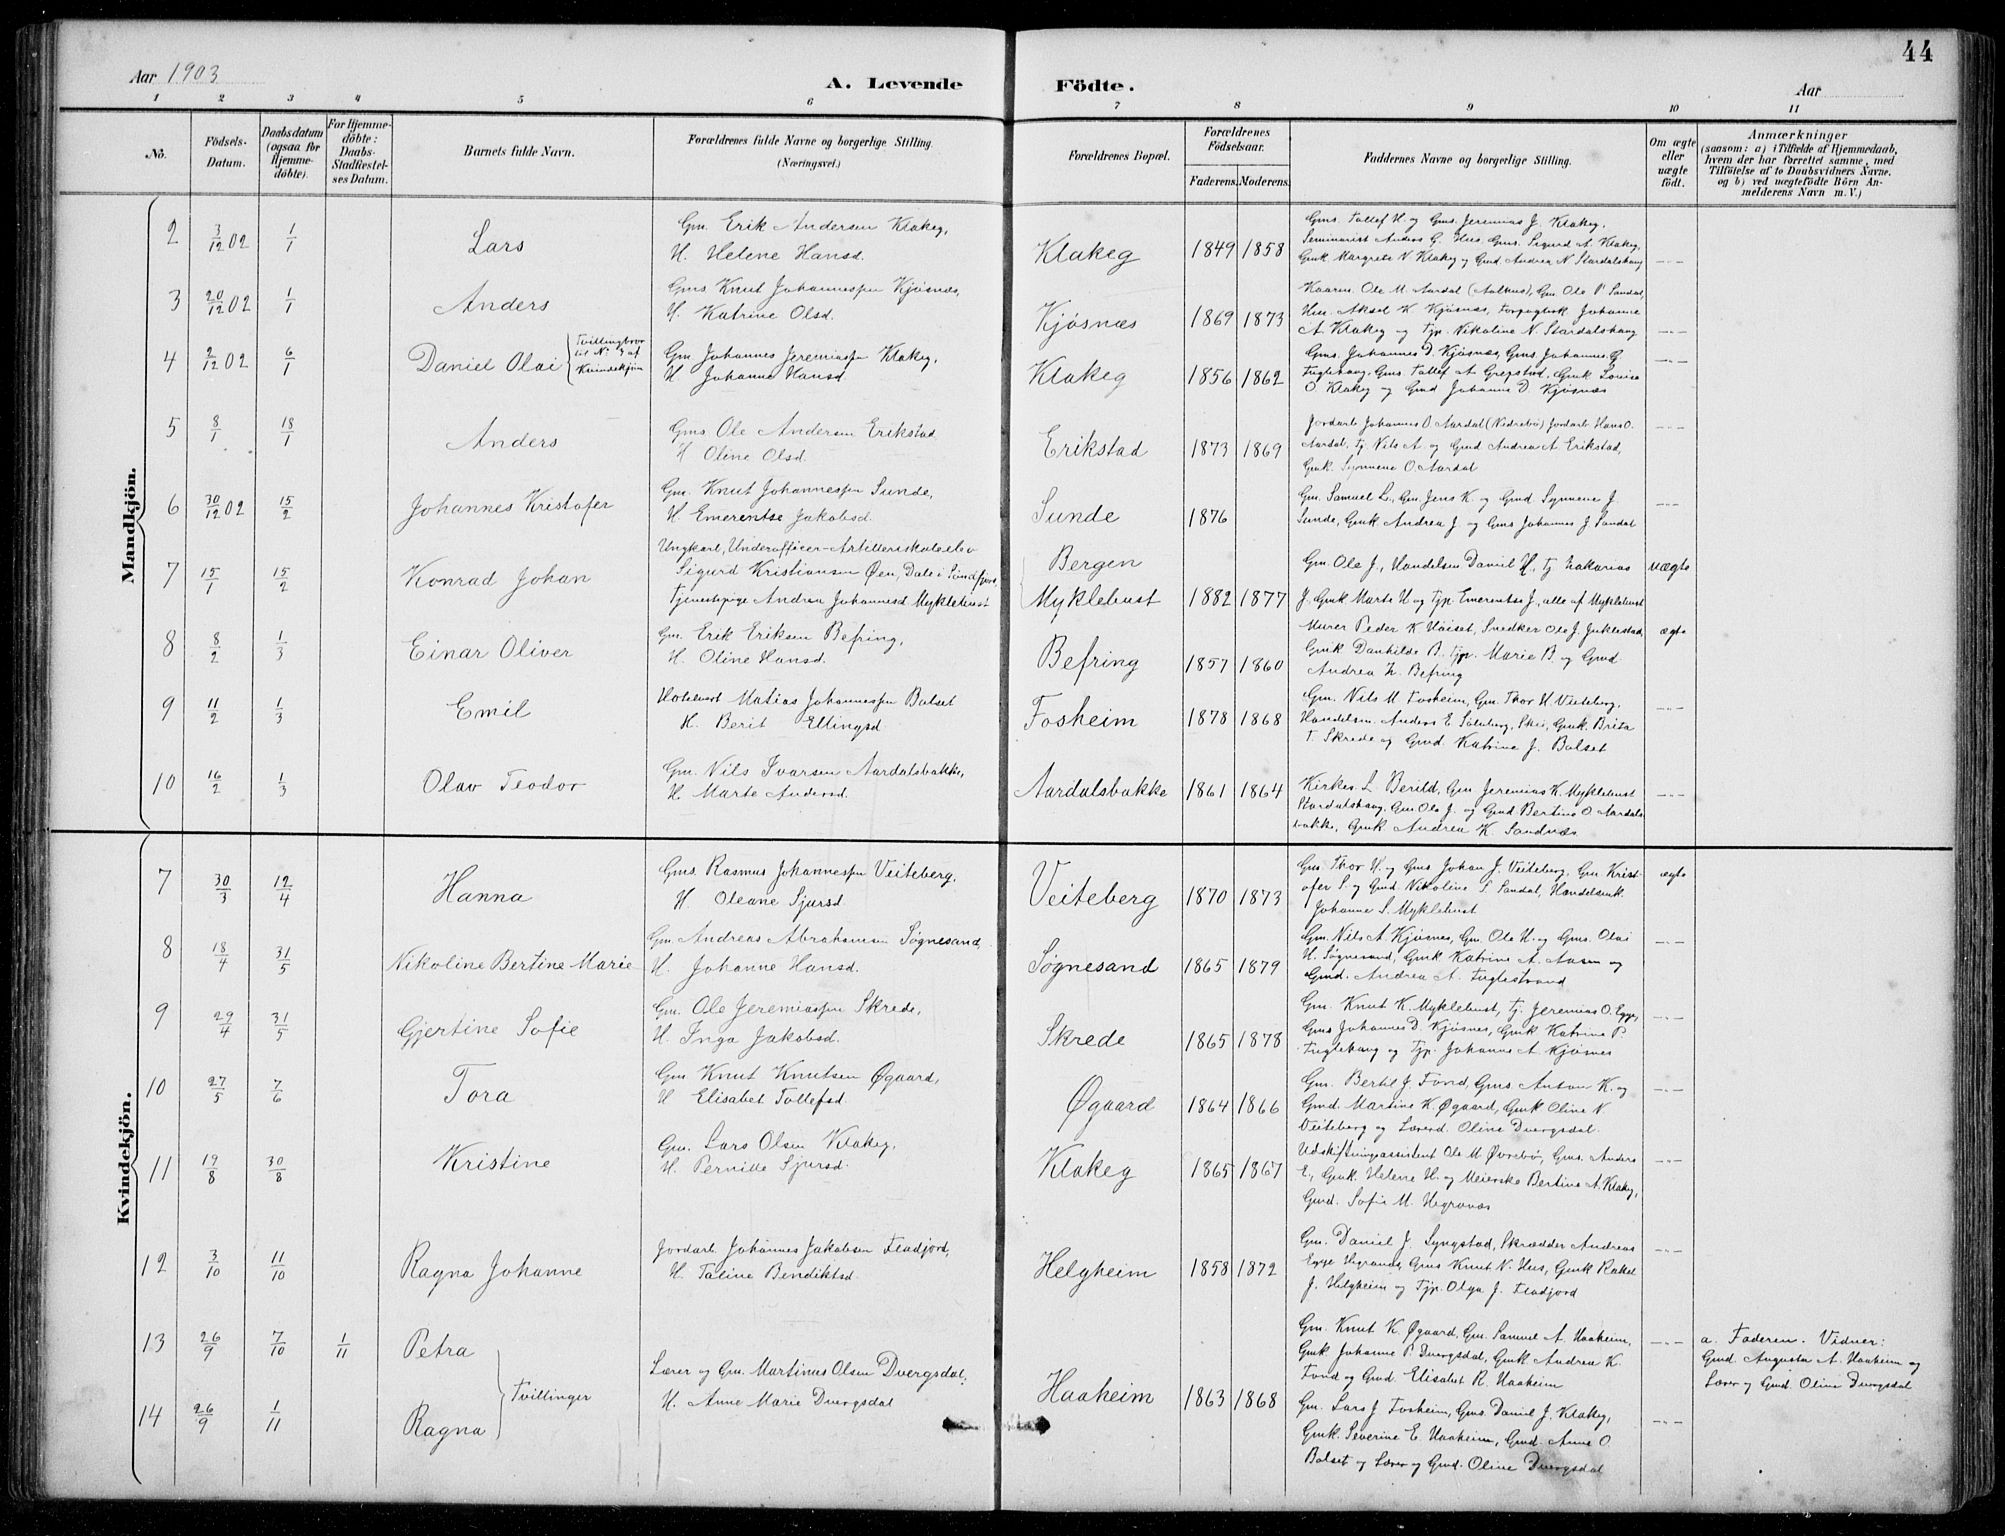 44
Aar 1903
A. Levende
Födte.
Aar
1 2 3 4 5 6 7 8 9 10 11
No.
Födsels-Datum.
Daabsdatum (ogsaa for Hjemme-döbte).
For Hjemme-döbte: Daabs-Stadfæstel-ses Datum.
Barnets fulde Navn.
Forældrenes fulde Navne og borgerlige Stilling.
(Næringsvei.)
Forældrenes Bopæl.
Forældrenes Födselsaar.
Faderens. Moderens.
Faddernes Navne og borgerlige Stilling.
Om ægte eller uægte födt.
Anmærkninger
(saasom: a) i Tilfælde af Hjemmedaab,
hvem der har forrettet samme, med
Tilföielse af to Daabsvidners Navne.
og b) ved uægtefödte Börn An-
melderens Navn m. V.)
Mandkjön.
2 3/12 02 1/1 Lars
Gm. Erik Andersen Klakeg,
H. Helene Hansd.
Klakeg 1849 1858
Gms. Tollef H. og Gms. Jeremias J. Klakeg,
Seminarist Anders G. Hus, Gms. Sigurd A. Klakeg,
Gmk Margrete N. Klakeg og Gmd. Andrea N. Stardalshaug
3 20/12 02 1/1 Anders
Gms Knut Johannessen Kjøsnæs,
H. Katrine Olsd.
Kjøsnæs 1869 1873
Kaarm. Ole M. Aardal (Aalhus), Gm. Ole P. Sandal,
Hus. Aksel K. Kjøsnæs, Johanne
A. Klakeg og Tjp. Nikoline N. Stardalshaug
4 2/12 02 6/1 Daniel Olai
Tvillingbror til No 3 af Kvindekjøn
Gm Johannes Jeremiassen Klakeg,
H Johanne Hansd.
Klakeg 1856 1862
Gms. Johannes D. Kjøsnæs, Gms. Johannes G.
Fuglehaug, Gms Tollef A. Grepstad, Gmk Lovisa
O. Klakeg og Gmd Johanne D. Kjøsnæs
5 8/1 18/1 Anders
Gms Ole Andersen Erikstad
H Oline Olsd.
Erikstad 1873 1869
Jordarb. Johannes O Aardal (Nedrebø) Jordarb. Hans O.
Aardal, Tj Nils A. og Gmd Andrea A. Erikstad,
Gmk. Synneve O. Aardal
6 30/12 02 15/2 Johannes Kristofer
Gm. Knut Johannessen Sunde,
H Emerentse Jakobsd.
Sunde 1876
Gm. Samuel L., Gm. Jens K. og Gmd Synneve J.
Sunde, Gmk Andrea J. og Gms Johannes J Sandal
7 15/1 15/2 Konrad Johan
Ungkarl, Underofficer-Artilleriskoleelev
Sigurd Kristiansen Øen, Dale i Søndfjord,
Tjenestepige Andrea Johannesd Myklebust
Bergen
Myklebust 1882 1877
Gm. Ole J., Handelsm Daniel H., Tj Zakarias
J. Gmk Marte H og Tjp. Emerentse J., alle af Myklebust
uægte
8 8/2 1/3 Einar Oliver
Gm. Erik Eriksen Befring,
H. Oline Hansd.
Befring 1857 1860
Murer Peder K Høiset, Snedker Ole J. Juklestad,
Gmk Danhilde B. Tjp. Marie B. og Gmd
Andrea Z. Befring
ægte
9 11/2 1/3 Emil
Hotelvert Matias Johannessen Bolset
H. Berit Ellingsd
Fosheim 1878 1868
Gm. Nils M. Fosheim, Gm. Thor H. Veiteberg,
Handelsm. Anders E. Solaberg, Skei, Gmk. Brita
T. Skrede og Gmd. Katrine J. Bolset
10 16/2 1/3 Olav Teodor
Gm. Nils Ivarsen Aardalsbakke,
H. Marte Andersd.
Aardalsbakke 1861 1864
Kirkes. L Berild, Gm Jeremias K. Myklebust
Stardalshaug, Gm Ole J. og Gmd Bertine O. Aardals-
bakke, Gmk Andrea K. Sandnæs
Kvindekjön.
7 30/3 12/4 Hanna
Gms. Rasmus Johannessen Veiteberg,
H. Oleane Sjursd.
Veiteberg 1870 1873
Gm. Thor H. og Gms Johan J. Veiteberg, Gm Krist-
ofer S. og Gmd Nikoline S. Sandal, Handelsmk
Johanne S. Myklebust
ægte
8 18/4 31/5 Nikoline Bertine Marie
Gm. Andreas Abrahamsen Søgnesand
H. Johanne Hansd.
Søgnesand 1865 1879
Gm. Nils A. Kjøsnes, Gm. Ole H. og Gms. Olai
H. Søgnesand, Gmk Katrine A. Aasen og
Gmd. Andrea A. Fuglestrand
9 29/4 31/5 Gjertine Sofie
Gm. Ole Jeremiassen Skrede,
H. Inga Jakobsd.
Skrede 1865 1878
Gm. Knut K. Myklebust, Tj. Jeremias O. Egge,
Gms Johannes D. Kjøsnes, Gmk Katrine P.
Fuglehaug og Tjp. Johanne A. Kjøsnes
10 27/5 7/6 Tora
Gm Knut Knutsen Øgaard,
H Elisabet Tollefsd.
Øgaard 1864 1866
Gm. Bertel J. Fond, Gms. Anton K. og
Gmd. Martine K. Øgaard, Gmk Oline N.
Veiteberg og Lærerd. Oline Dvergsdal.
11 19/8 30/8 Kristine
Gm. Lars Olsen Klakeg.
H. Pernille Sjursd.
Klakeg 1865 1867
Udskiftningsassistent Ole M. Øvrebø, Gms. Anders
E., Gmk. Helene H. og Meierske Bertine A. Klakeg,
Gmd. Sofie M.
12 3/10 11/10 Ragna Johanne
Jordarb. Johannes Jakobsen Fladjord,
H. Taline Bendiktsd.
Helgheim 1858 1872
Gm. Daniel J. Lyngstad, Skrædder Andreas
Egge Gms Knut N. Hus, Gmk Rakel
J. Helgheim og Tjp. Olga J. Fladjord
13 26/9 7/10 1/11 Petra
14 26/9 1/11 Ragna
Tvillinger
Lærer og Gm. Martinus Olsen Dvergsdal,
H. Anne Marie Dvergsdal
Haaheim 1863 1868
Gm. Knut K. Øgaard, Gm. Samuel A. Haaheim,
Gmk Johanne P. Dvergsdal, Gmk Andrea K.
Fond og Gmd. Elisabet R. Haaheim
a. Faderen. Vidner:
Gmd. Augusta A. Haaheim og
Lærer og Gmd. Oline Dvergsdal
Gm. Lars J. Fosheim, Gms. Daniel J. Klakeg,
Gmk. Severine E. Haaheim, Gmd. Anne O.
Bolset og Lærer og Gmd. Oline Dvergsdal